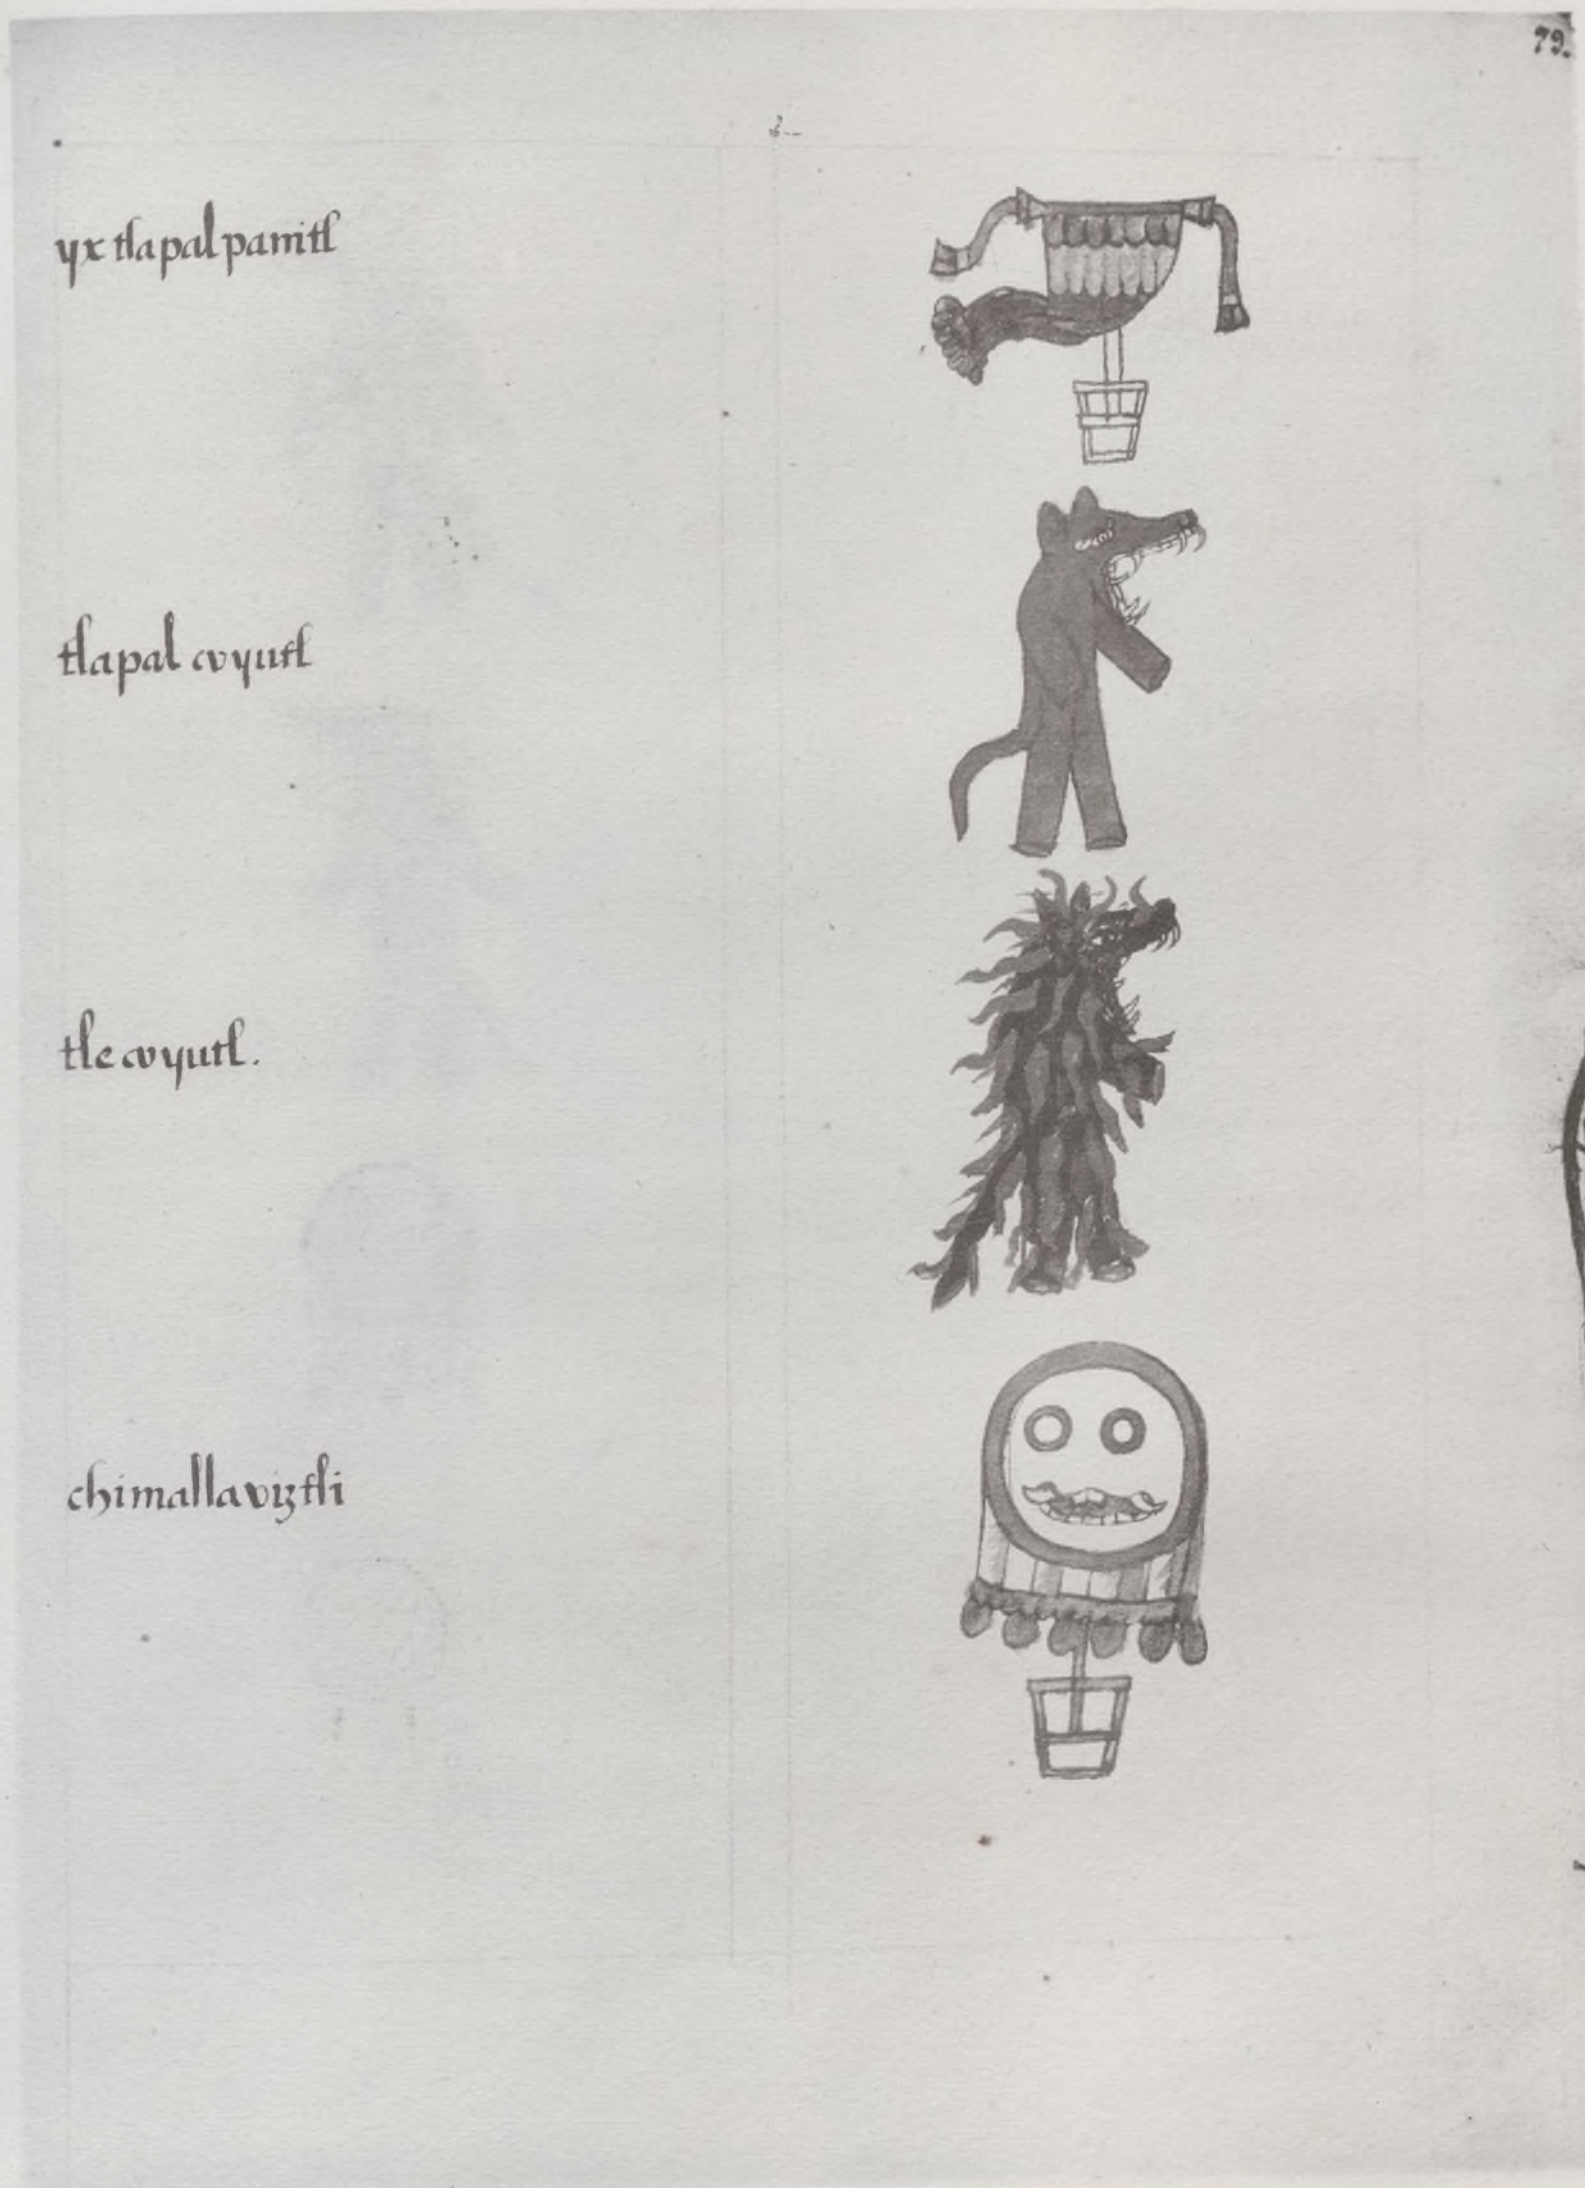 79.
yx tlapal panitl
tlapal coyutl
tle coyutl.
chimallaviztli